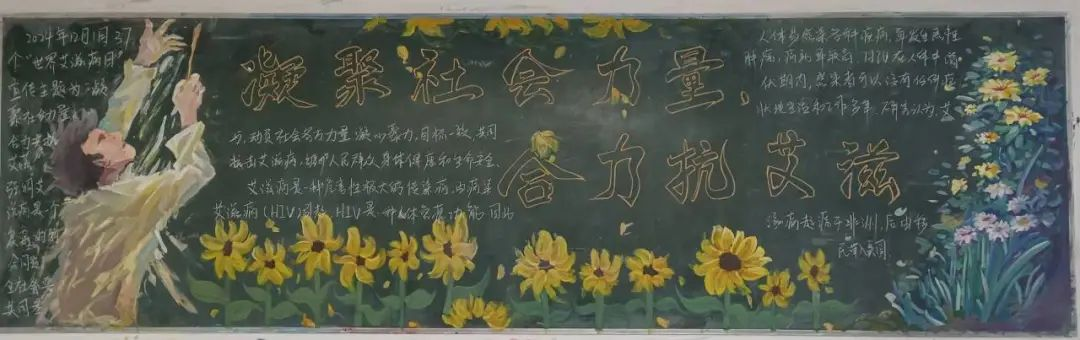 2024年12月1日37
个“世界艾滋病日”
宣传主题为“凝
聚社会力量
凝聚社会力量，
合力抗艾滋
与,动员社会各方力量,凝心聚力,目标一致,共同
抗击艾滋病,维护人民群众身体健康和生命安全.
艾滋病是一种危害性极大的传染病,由病染
艾滋病(HIV)引起,HIV是一种人体免疫功能
人体易感染各种疾病,可发生恶性
肿瘤,病死率较高,HIV在人体中潜
伏期内,感染者可以没有任何症
状地生活和工作多年.研究认为,艾
滋病起源于非洲,后由移
民带入美国.
强调艾
滋病是
会问题
全社会
共同